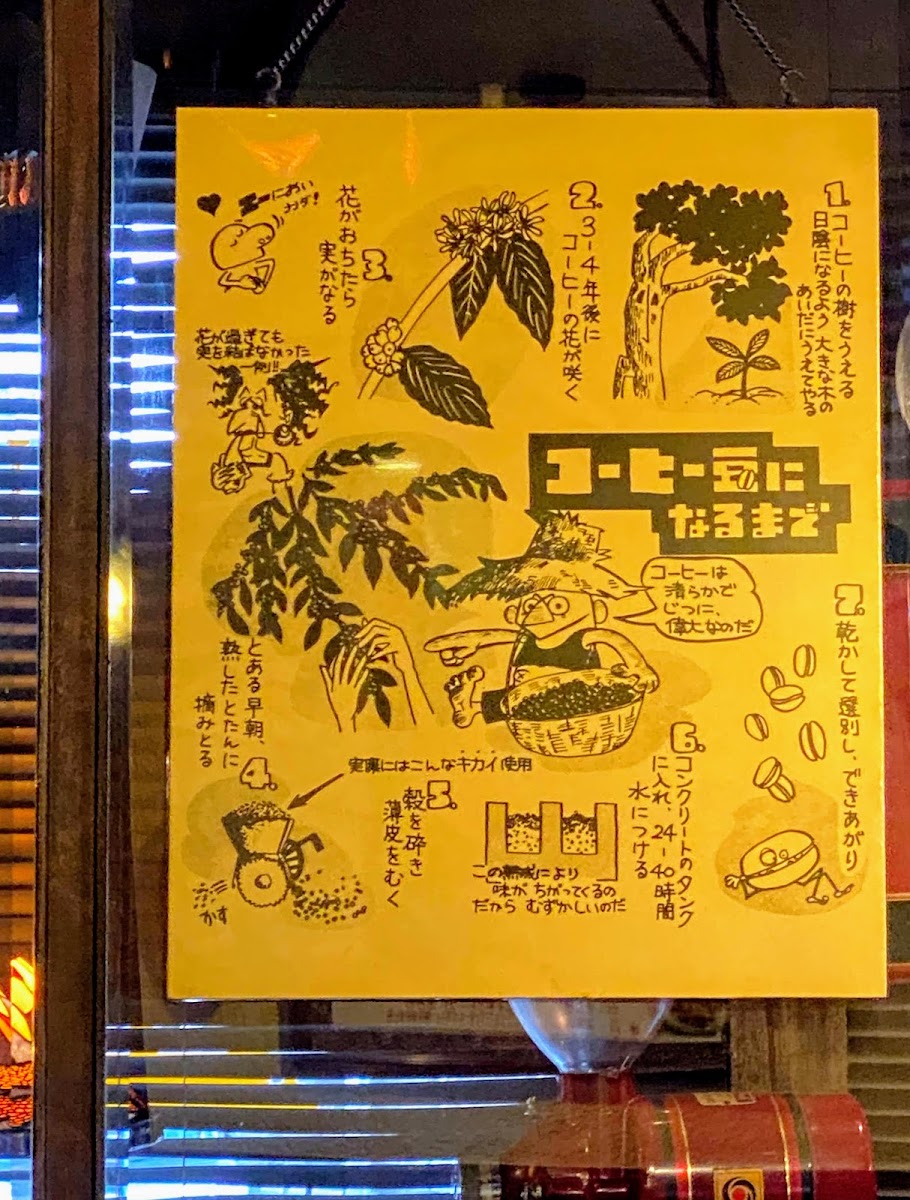 コーヒー豆に
なるまで
1.
コーヒーの樹をうえる
日陰になるよう大きな木の
あいだにうえてやる
2.
3-4年後に
コーヒーの花が咲く
3.
花がおちたら
実がなる
におい
カナ!
花が過ぎても
実を結ばなかった
一例!!
コーヒーは
清らかで
じつに、
偉大なのだ
4.
とある早朝、
熟したとたんに
摘みとる
5.
殻を砕き
薄皮をむく
実際にはこんなキカイ使用
かす
6.
コンクリートのタンク
に入れ、24-40時間
水につける
この熟成により
味がちがってくるの
だから むずかしいのだ
7.
乾かして選別し、できあがり